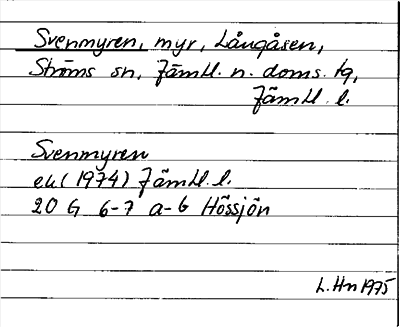 Svenmyren, myr, Långåsen,
Ströms sn, Jämtl. n. doms. tg,
Jämtl. l.
Svenmyren
ek (1974) Jämtl. l.
20 G 6-7 a-b Hössjön
L. Hn 1975